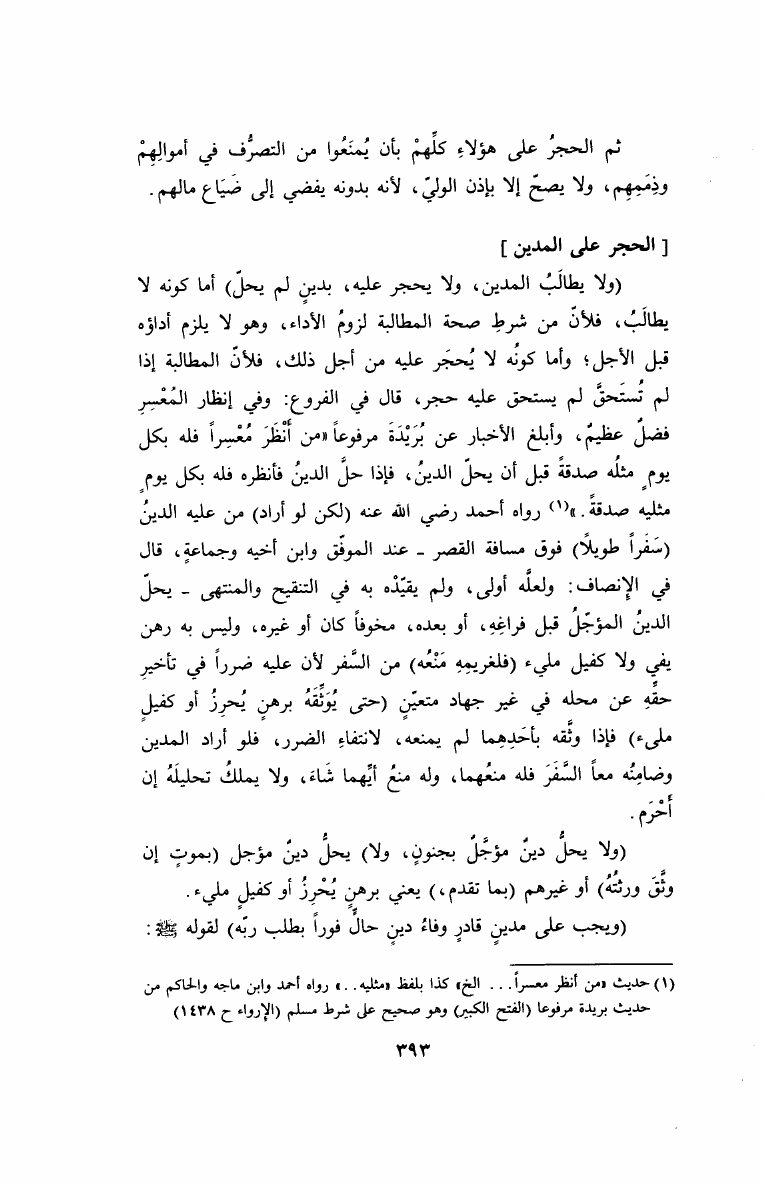 ثم الحجرُ على هؤلاءِ كلِّهِمْ بأن يُمنَعُوا من التصرُّف في أموالِهِمْ
وذِمَمِهِم، ولا يصحّ إلا بإذن الوليّ، لأنه بدونه يفضي إلى ضَيَاع مالهم.
[ الحجر على المدين ]
(ولا يطالَبُ المدين، ولا يحجر عليه، بدينٍ لم يحلّ) أما كونه لا
يطالَبُ، فلأنّ من شرطِ صحة المطالبة لزومُ الأداء، وهو لا يلزم أداؤه
قبل الأجل؛ وأما كونُه لا يُحجَر عليه من أجل ذلك، فلأنّ المطالبة إذا
لم تُستَحقَّ لم يستحق عليه حجر، قال في الفروع: وفي إنظار المُعْسِرِ
فضلٌ عظيمٌ، وأبلغ الأخبار عن بُرَيْدَةَ مرفوعاً «من أَنْظَرَ مُعْسِراً فله بكل
يومٍ مثلُه صدقةً قبل أن يحلّ الدينُ، فإذا حلَّ الدينُ فأنظره فله بكل يومٍ
مثليه صدقةً.»(١) رواه أحمد رضي الله عنه (لكن لو أراد) من عليه الدينُ
(سَفَراً طويلًا) فوق مسافة القصر ـ عند الموفّق وابن أخيه وجماعةٍ، قال
في الإِنصاف: ولعلَّه أولى، ولم يقيّدْه به في التنقيح والمنتهى ـ يحلّ
الدينُ المؤجّلُ قبل فراغِهِ، أو بعده، مخوفاً كان أو غيره، وليس به رهن
يفي ولا كفيل مليء (فلغريمِهِ مَنْعُه) من السَّفر لأن عليه ضرراً في تأخير
حقِّهِ عن محله في غير جهاد متعيّنٍ (حتى يُوَثِّقَهُ برهنٍ يُحرِزُ أو كفيلٍ
مليء) فإذا وثَّقه بأحَدِهِما لم يمنعه، لانتفاءِ الضرر، فلو أراد المدين
وضامِنُه معاً السَّفَرَ فله منعُهما، وله منعُ أيِّهما شَاءَ، ولا يملكُ تحليلَهُ إن
أَحْرَم.
(ولا يحلُّ دينٌ مؤجَّلٌ بجنونٍ، ولا) يحلُّ دينٌ مؤجل (بموتٍ إن
وثَّقَ ورثتُهُ) أو غيرهم (بما تقدم،) يعني برهنٍ يُحْرِزُ أو كفيلٍ مليء.
(ويجب على مدينٍ قادرٍ وفاءُ دينٍ حالٍّ فوراً بطلب ربّه) لقوله ﷺ:
(١) حديث «من أنظر معسراً... الخ» كذا بلفظ «مثليه..» رواه أحمد وابن ماجه والحاكم من
حديث بريدة مرفوعا (الفتح الكبير) وهو صحيح على شرط مسلم (الإرواء ح ١٤٣٨)
٣٩٣